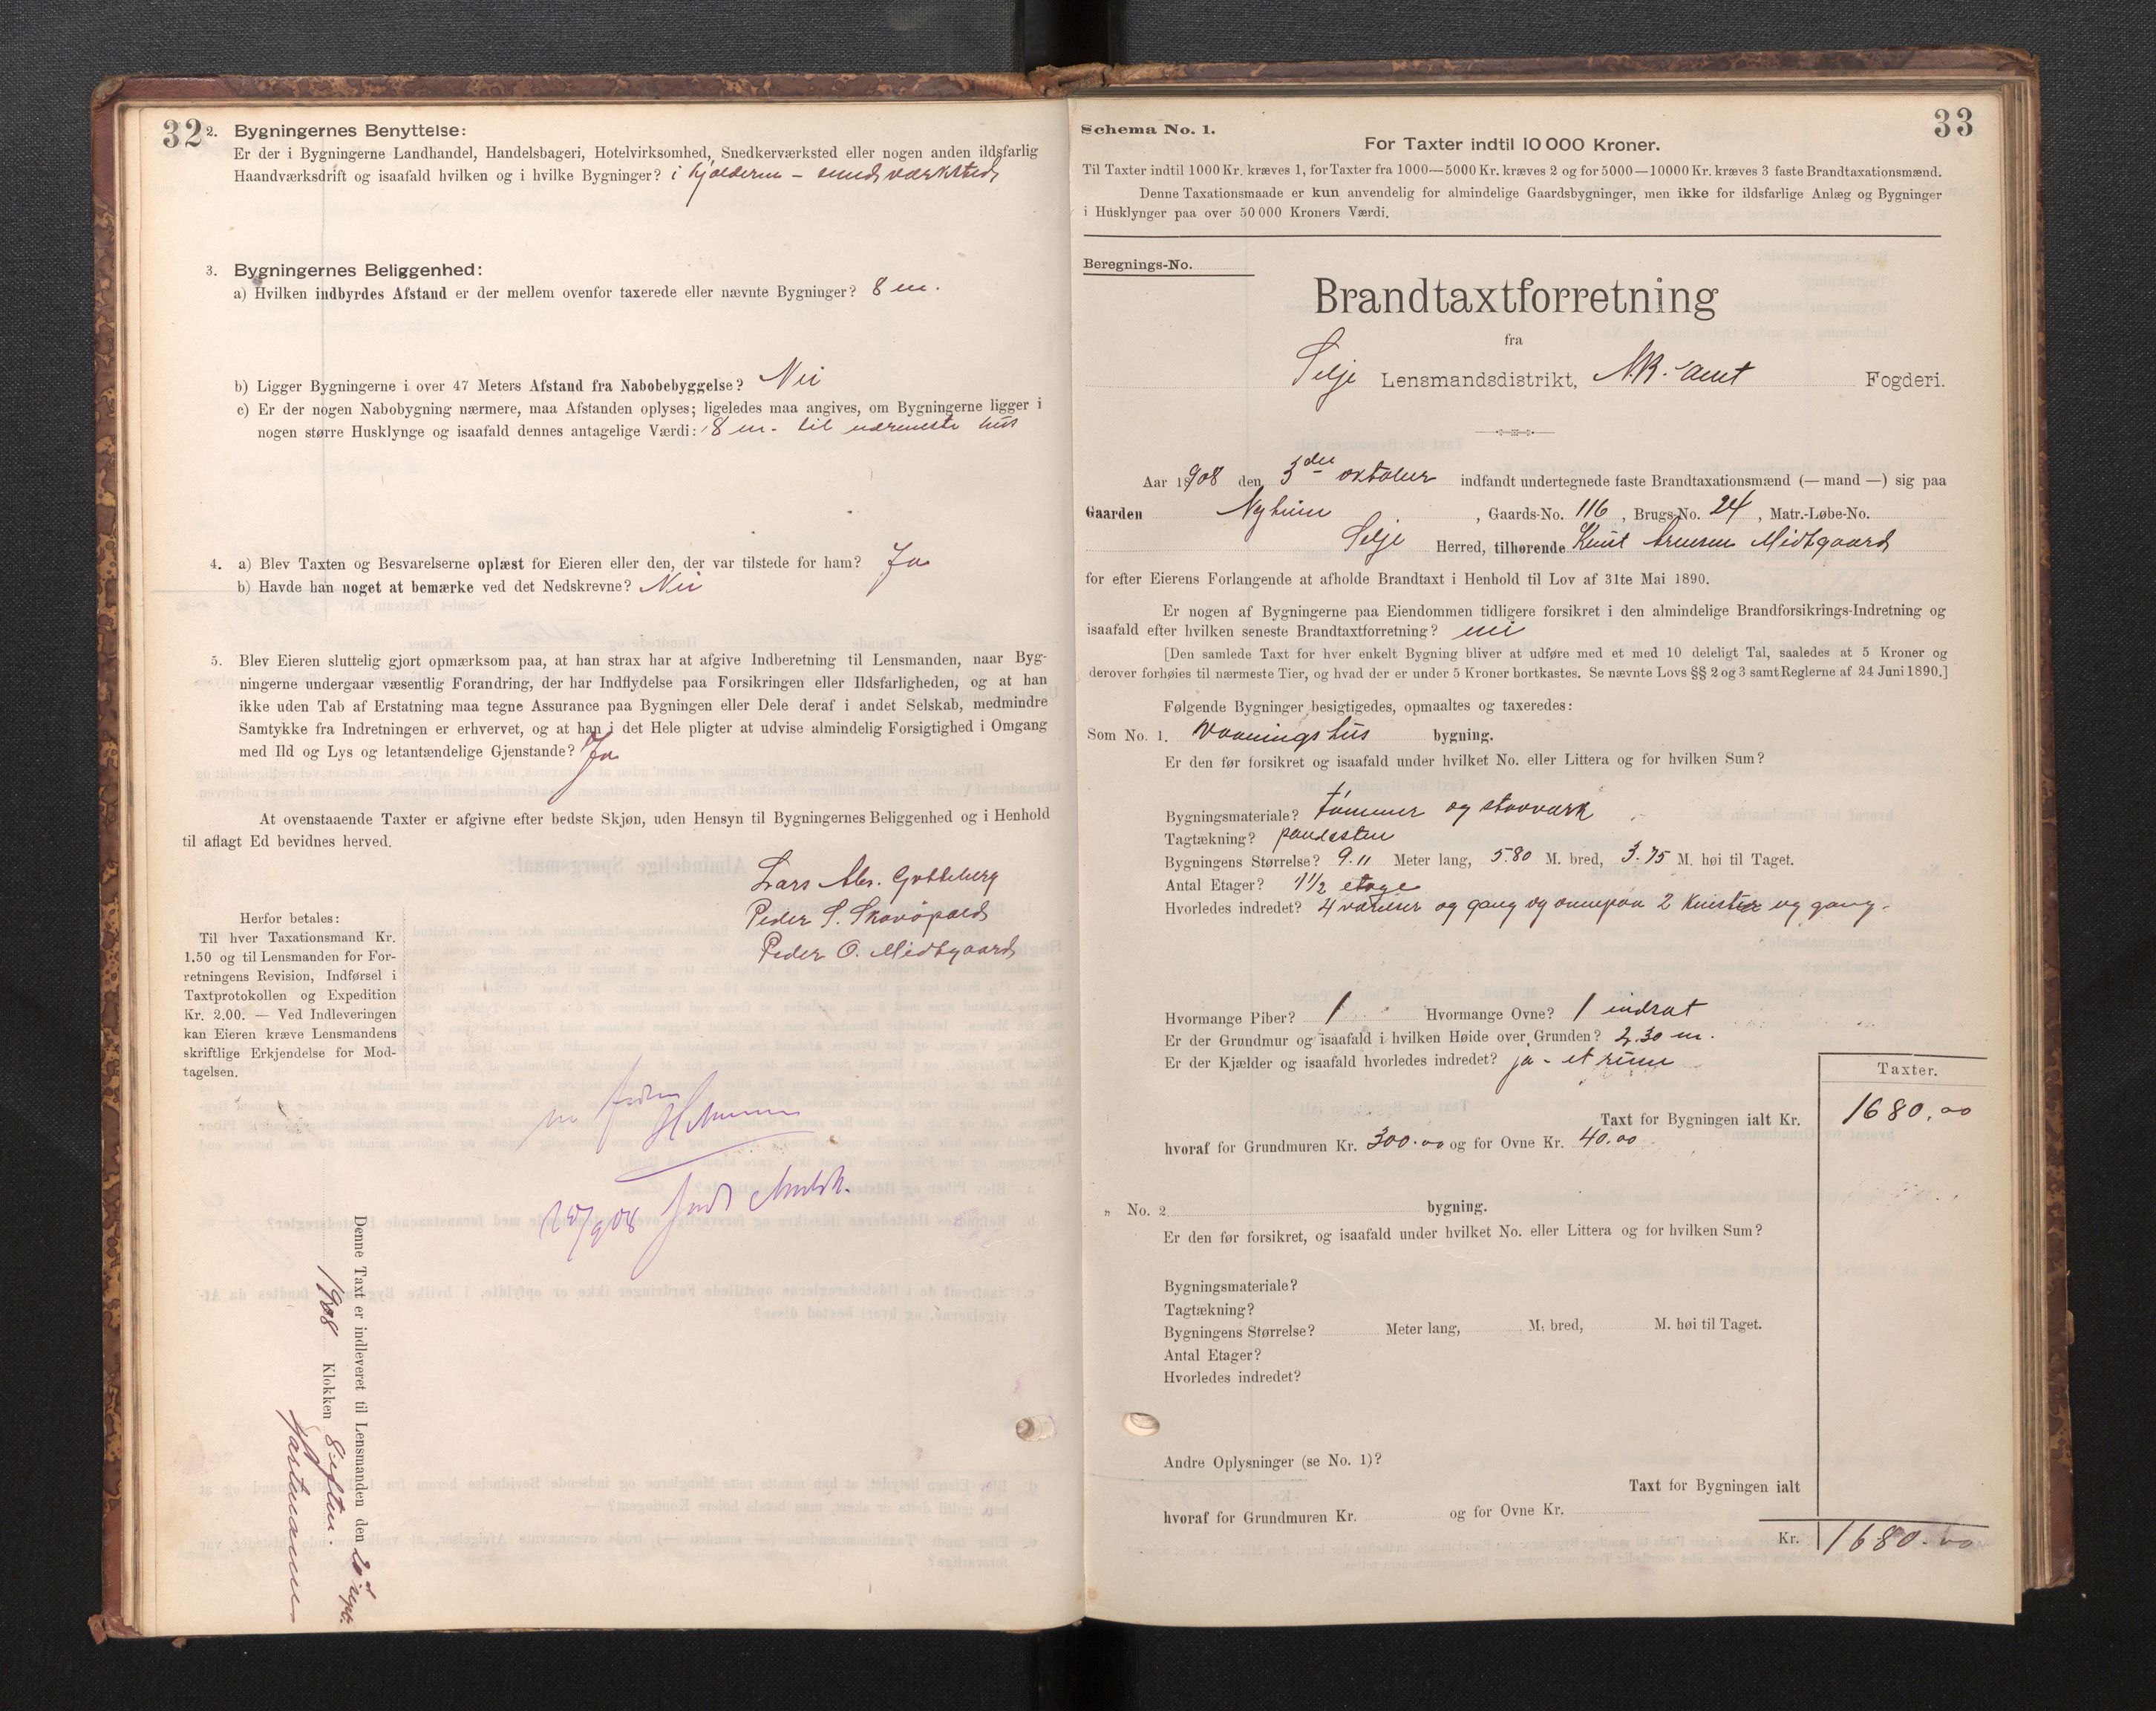 32
2. Bygningernes Benyttelse:
Er der i Bygningerne Landhandel, Handelsbageri, Hotelvirksomhed, Snedkerværksted eller nogen anden ildsfarlig
Haandværksdrift og isaafald hvilken og i hvilke Bygninger? i kjælderen – smedværksted
3. Bygningernes Beliggenhed:
a) Hvilken indbyrdes Afstand er der mellem ovenfor taxerede eller nævnte Bygninger? 8 m.
b) Ligger Bygningerne i over 47 Meters Afstand fra Nabobebyggelse? Nei
c) Er der nogen Nabobygning nærmere, maa Afstanden oplyses; ligeledes maa angives, om Bygningerne ligger i
nogen større Husklynge og isaafald dennes antagelige Værdi: 8 m. til nærmeste hus
4. a) Blev Taxten og Besvarelserne oplæst for Eieren eller den, der var tilstede for ham? Ja
b) Havde han noget at bemærke ved det Nedskrevne? Nei
5. Blev Eieren sluttelig gjort opmærksom paa, at han strax har at afgive Indberetning til Lensmanden, naar Byg-
ningerne undergaar væsentlig Forandring, der har Indflydelse paa Forsikringen eller Ildsfarligheden, og at han
ikke uden Tab af Erstatning maa tegne Assurance paa Bygningen eller Dele deraf i andet Selskab, medmindre
Samtykke fra Indretningen er erhvervet, og at han i det Hele pligter at udvise almindelig Forsigtighed i Omgang
med Ild og Lys og letantændelige Gjenstande? Ja
At ovenstaaende Taxter er afgivne efter bedste Skjøn, uden Hensyn til Bygningernes Beliggenhed og i Henhold
til aflagt Ed bevidnes herved.
Lars Abr. Gotteberg
Peder S. Skorøpæld
Peder O. Midtgaard
Herfor betales:
Til hver Taxationsmand Kr.
1.50 og til Lensmanden for For-
retningens Revision, Indførsel i
Taxtprotokollen og Expedition
Kr. 2.00. — Ved Indleveringen
kan Eieren kræve Lensmandens
skriftlige Erkjendelse for Mod-
tagelsen.
Denne Taxt er indleveret til Lensmanden den 20 sept.
1908 Klokken 8 eftm.
33
Schema No. 1.
For Taxter indtil 10 000 Kroner.
Til Taxter indtil 1000 Kr. kræves 1, for Taxter fra 1000—5000 Kr. kræves 2 og for 5000—10000 Kr. kræves 3 faste Brandtaxationsmænd.
Denne Taxationsmaade er kun anvendelig for almindelige Gaardsbygninger, men ikke for ildsfarlige Anlæg og Bygninger
i Husklynger paa over 50 000 Kroners Værdi.
Beregnings-No.
Brandtaxtforretning
fra
Selje Lensmandsdistrikt, N.B. Amt Fogderi.
Aar 1908 den 3die oktober indfandt undertegnede faste Brandtaxationsmænd (— mand —) sig paa
Gaarden Nyheim, Gaards-No. 116, Brugs-No. 24, Matr.-Løbe-No.
Selje Herred, tilhørende Knut Arensen Midtgaard
for efter Eierens Forlangende at afholde Brandtaxt i Henhold til Lov af 31te Mai 1890.
Er nogen af Bygningerne paa Eiendommen tidligere forsikret i den almindelige Brandforsikrings-Indretning og
isaafald efter hvilken seneste Brandtaxtforretning? nei
[Den samlede Taxt for hver enkelt Bygning bliver at udføre med et med 10 deleligt Tal, saaledes at 5 Kroner og
derover forhøies til nærmeste Tier, og hvad der er under 5 Kroner bortkastes. Se nævnte Lovs §§ 2 og 3 samt Reglerne af 24 Juni 1890.]
Følgende Bygninger besigtigedes, opmaaltes og taxeredes:
Som No. 1. Vaaningshus bygning.
Er den før forsikret og isaafald under hvilket No. eller Littera og for hvilken Sum?
Bygningsmateriale? tømmer og stavværk
Tagtækning? pandesten
Bygningens Størrelse? 9.11 Meter lang, 5.80 M. bred, 3.75 M. høi til Taget.
Antal Etager? 1 1/2 etage
Hvorledes indredet? 4 værelser og gang og ovenpaa 2 kvister og gang.
Hvormange Piber? 1 Hvormange Ovne? 1 indsat
Er der Grundmur og isaafald i hvilken Høide over Grunden? 2.30 m.
Er der Kjælder og isaafald hvorledes indredet? ja – et rum
Taxter.
Taxt for Bygningen ialt Kr. 1680.00
hvoraf for Grundmuren Kr. 300.00 og for Ovne Kr. 40.00
" No. 2 bygning.
Er den før forsikret, og isaafald under hvilket No. eller Littera og for hvilken Sum?
Bygningsmateriale?
Tagtækning?
Bygningens Størrelse? Meter lang, M. bred, M. høi til Taget.
Antal Etager?
Hvorledes indredet?
Andre Oplysninger (se No. 1)?
Taxt for Bygningen ialt
hvoraf for Grundmuren Kr. og for Ovne Kr.
Kr. 1680.00